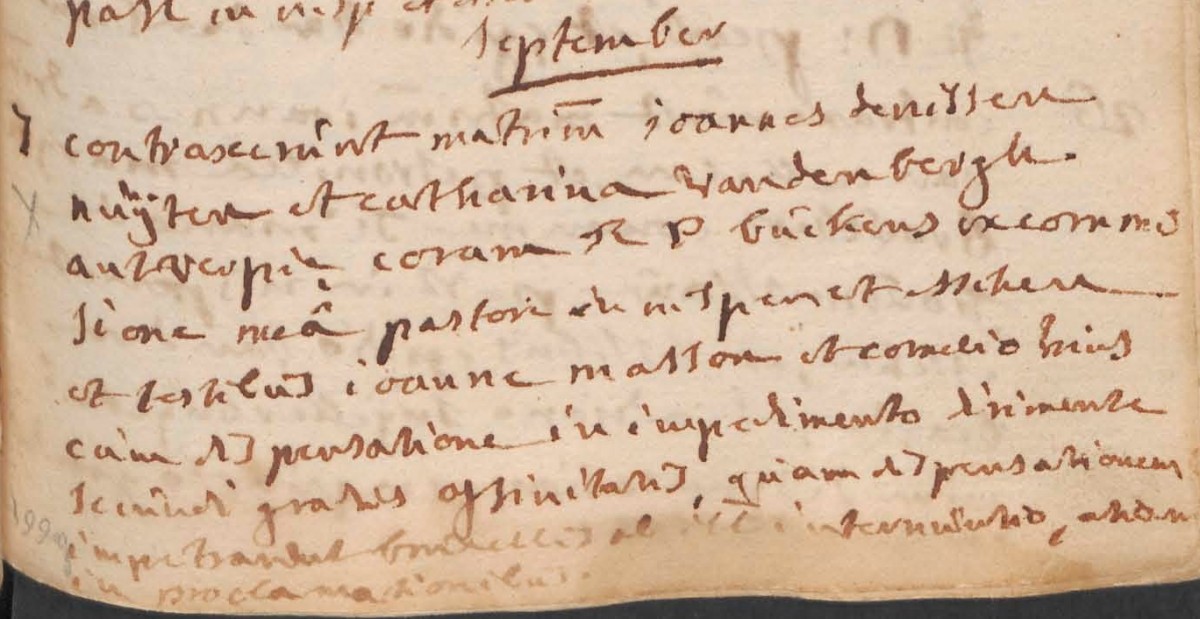 past in nisp et
September
7 contraxerunt matrim̄ joannes denissen
nuÿten et catharina Vandenbergh.
antverpiæ coram R P buckens ex commis
sione meâ pastoris in nispen et esschen
et testibus joanne masson et cornelio huis
cum dispensatione in impedimento dirimente
secundi gradus affinitatis, quam dispensationem
impetrarunt bruxellis ab ill internuntio,
in proclamationibus.